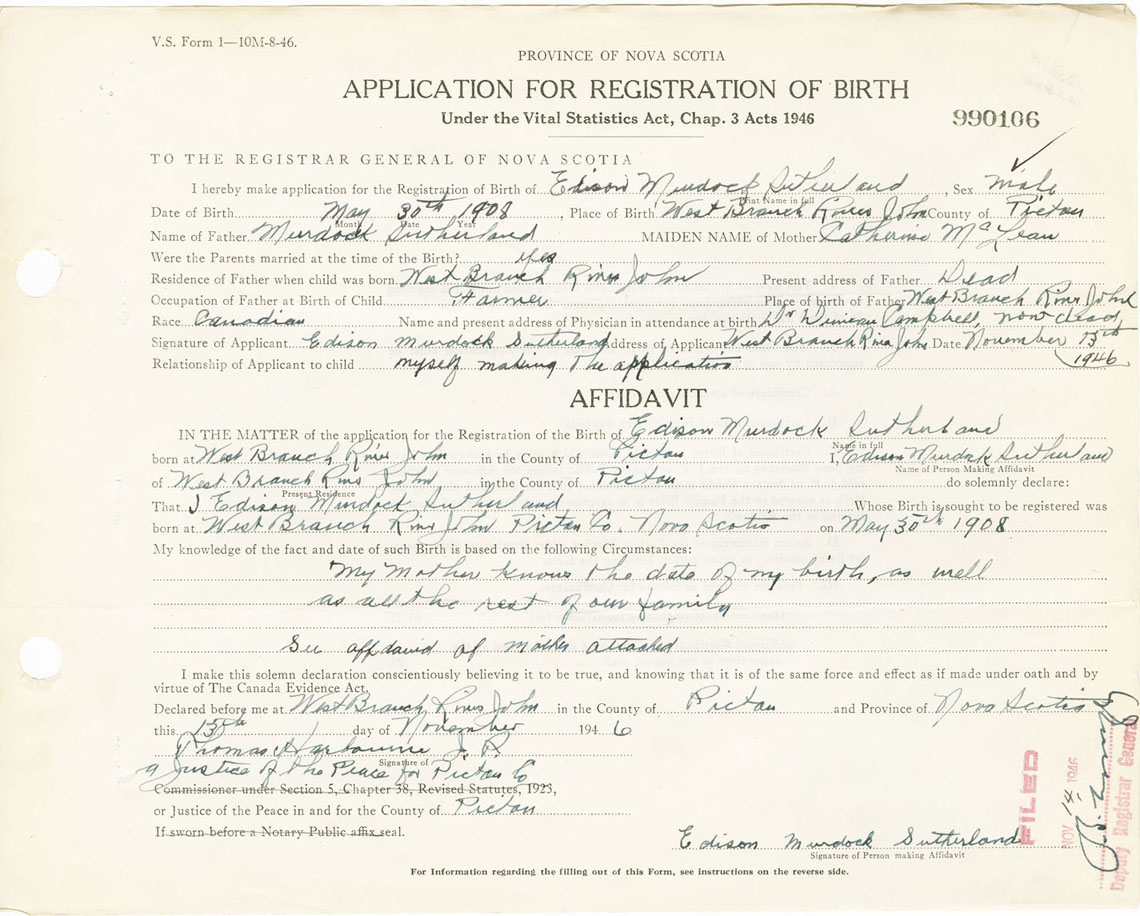 V.S. Form 1—10M-8-46.
PROVINCE OF NOVA SCOTIA
APPLICATION FOR REGISTRATION OF BIRTH
Under the Vital Statistics Act, Chap. 3 Acts 1946
990106
TO THE REGISTRAR GENERAL OF NOVA SCOTIA
I hereby make application for the Registration of Birth of Edison Murdock Sutherland, Sex male
Print Name in full
Date of Birth May 30th 1908, Place of Birth West Branch River John County of Pictou
Month Date Year
Name of Father Murdock Sutherland MAIDEN NAME of Mother Catherine McLean
Were the Parents married at the time of the Birth? yes
Residence of Father when child was born West Branch River John Present address of Father Dead
Occupation of Father at Birth of Child Farmer Place of birth of Father West Branch River John
Race Canadian Name and present address of Physician in attendance at birth Dr Duncan Campbell, now dead
Signature of Applicant Edison Murdock Sutherland Address of Applicant West Branch River John Date November 13th
Relationship of Applicant to child myself making the application 1946
AFFIDAVIT
IN THE MATTER of the application for the Registration of the Birth of Edison Murdock Sutherland
Name in full
born at West Branch River John in the County of Pictou I, Edison Murdock Sutherland
Name of Person Making Affidavit
of West Branch River John in the County of Pictou do solemnly declare:
Present Residence
That I Edison Murdock Sutherland Whose Birth is sought to be registered was
born at West Branch River John Pictou Co. Nova Scotia on May 30th 1908
My knowledge of the fact and date of such Birth is based on the following Circumstances:
My Mother knows the date of my birth, as well
as all the rest of our family
See affidavid of mother attached
I make this solemn declaration conscientiously believing it to be true, and knowing that it is of the same force and effect as if made under oath and by
virtue of The Canada Evidence Act.
Declared before me at West Branch River John in the County of Pictou and Province of Nova Scotia
this 13th day of November 1946
Thomas J. P.
Signature of
a Justice of the Peace for Pictou Co
Commissioner under Section 5, Chapter 38, Revised Statutes, 1923,
or Justice of the Peace in and for the County of Pictou
If sworn before a Notary Public affix seal.
Edison Murdock Sutherland
Signature of Person making Affidavit
For Information regarding the filling out of this Form, see instructions on the reverse side.
FILED
NOV 14 1946
Deputy Registrar General